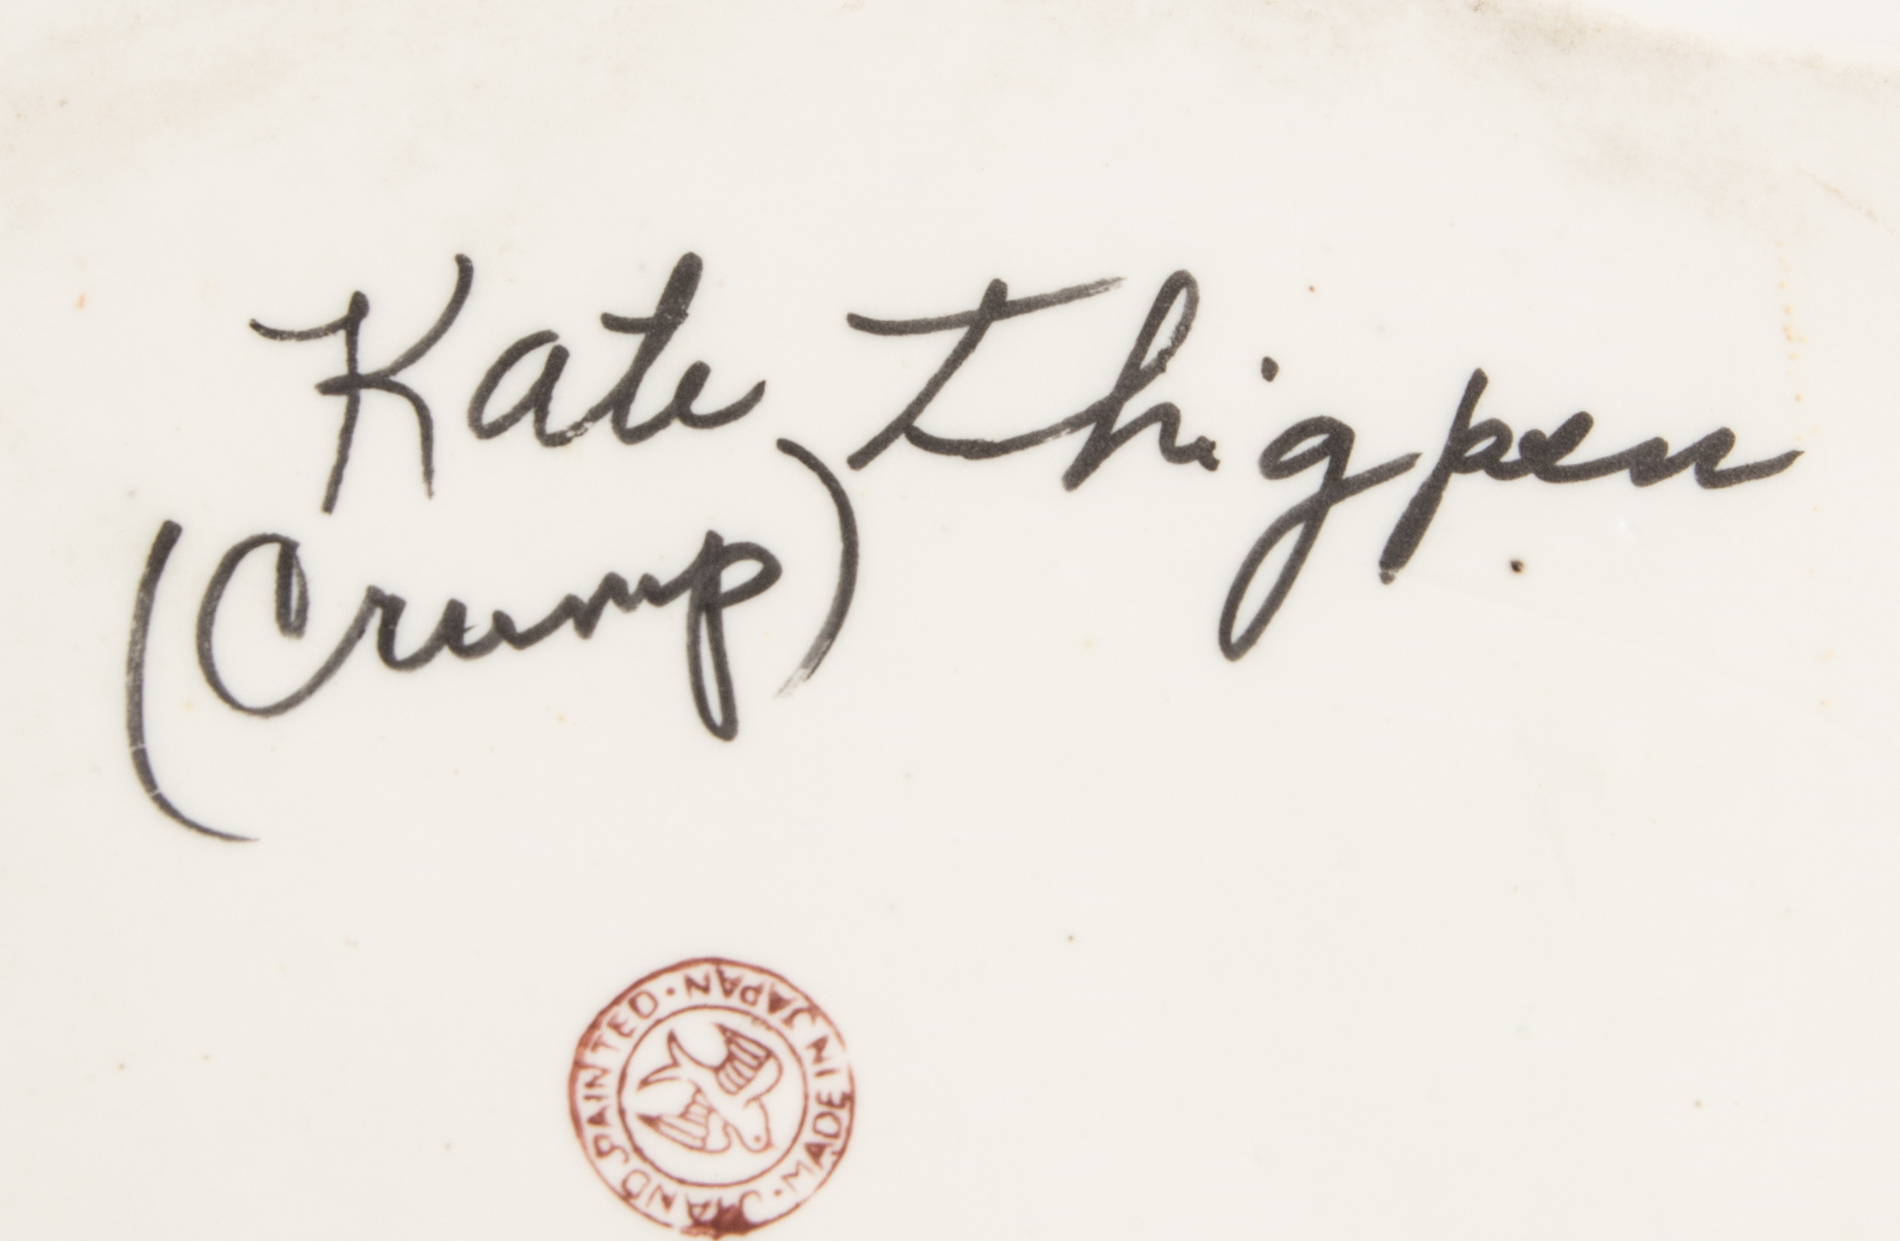 Kate Thigpen
(Crump)
HAND PAINTED · MADE IN JAPAN ·